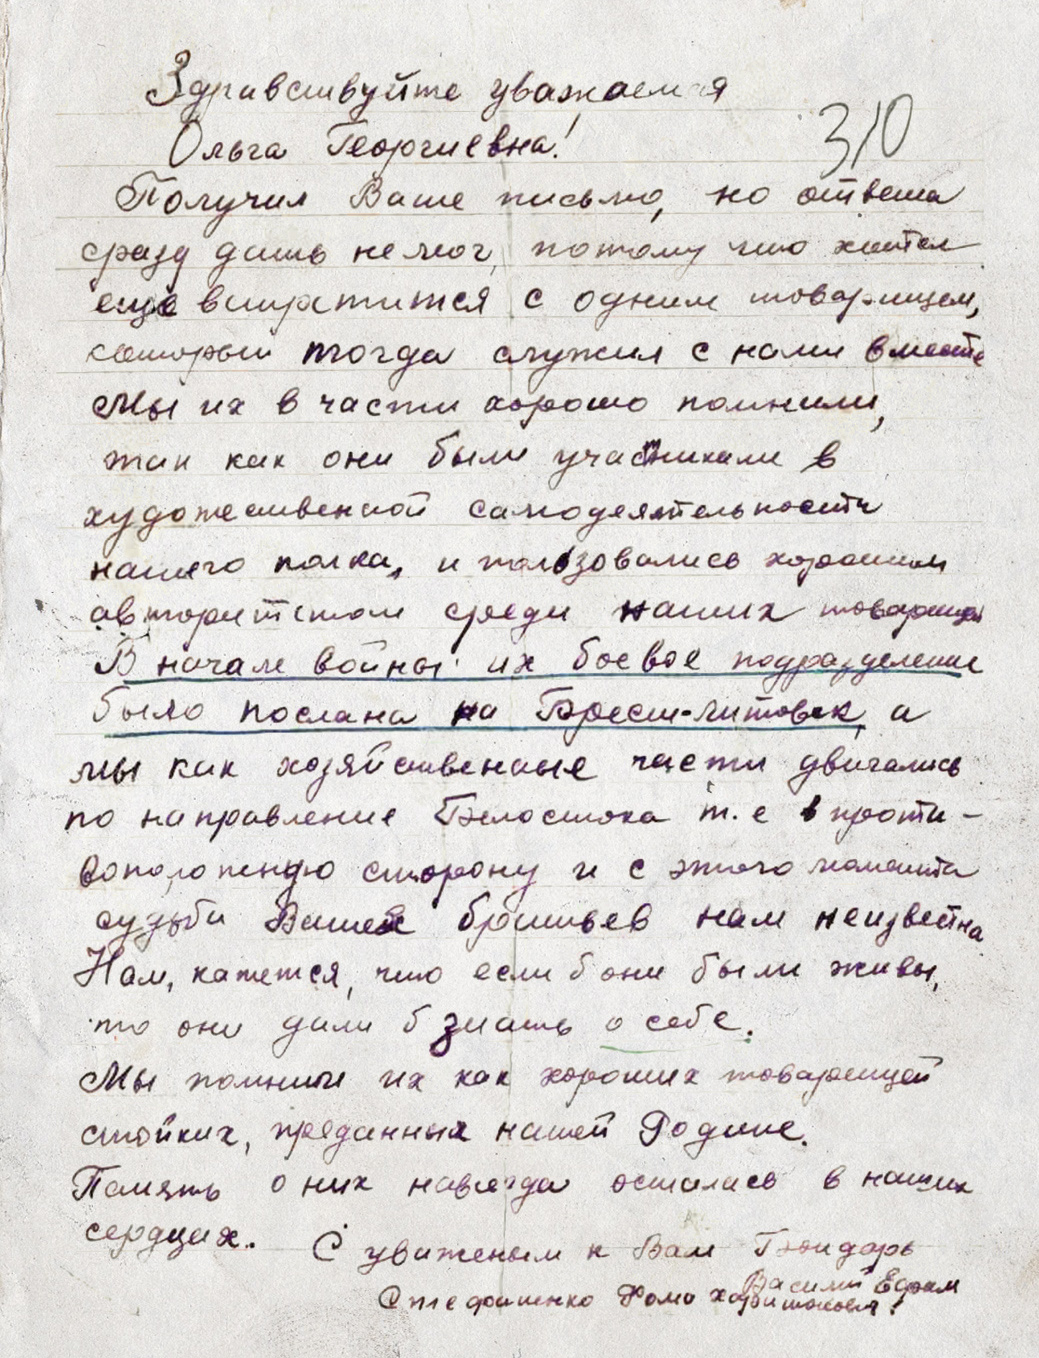 Здравствуйте уважаемая
Ольга Георгиевна!
310
Получил Ваше письмо, но ответа
сразу дать не мог, потому что хотел
еще встретится с одним товарищем,
который тогда служил с нами вместе
Мы их в части хорошо помнили,
так как они были участниками в
художественной самодеятельности
нашего полка, и пользовались хорошим
авторитетом среди наших товарищей
В начале войны их боевое подразделение
было послано на Брест-Литовск, а
мы как хозяйственные части двигались
по направление Белостока т.е в проти-
воположную сторону и с этого момента
судьба Ваших братьев нам неизвестна
Нам, кажется, что если б они были живы,
то они дали б знать о себе.
Мы помним их как хороших товарищей
стойких, преданных нашей Родине.
Память о них навсегда осталась в наших
сердцах.
С уважением к Вам Бондарь
Василий Ефим
Стефаненко Фома Харитонович!